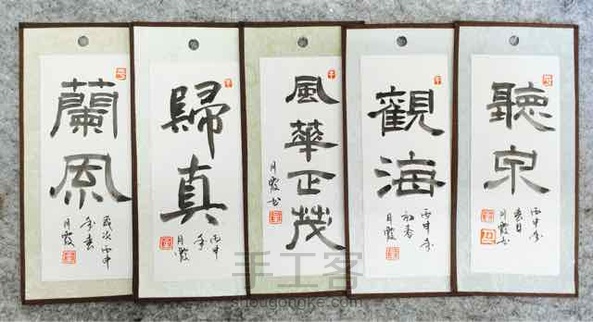 蘭風
歲次丙申
年春
月霞
歸真
丙申
年
月霞
風華正茂
月霞书
觀海
丙申年
初春
月霞
聽泉
丙申年
春日
月霞书
手工客
shougongke.com